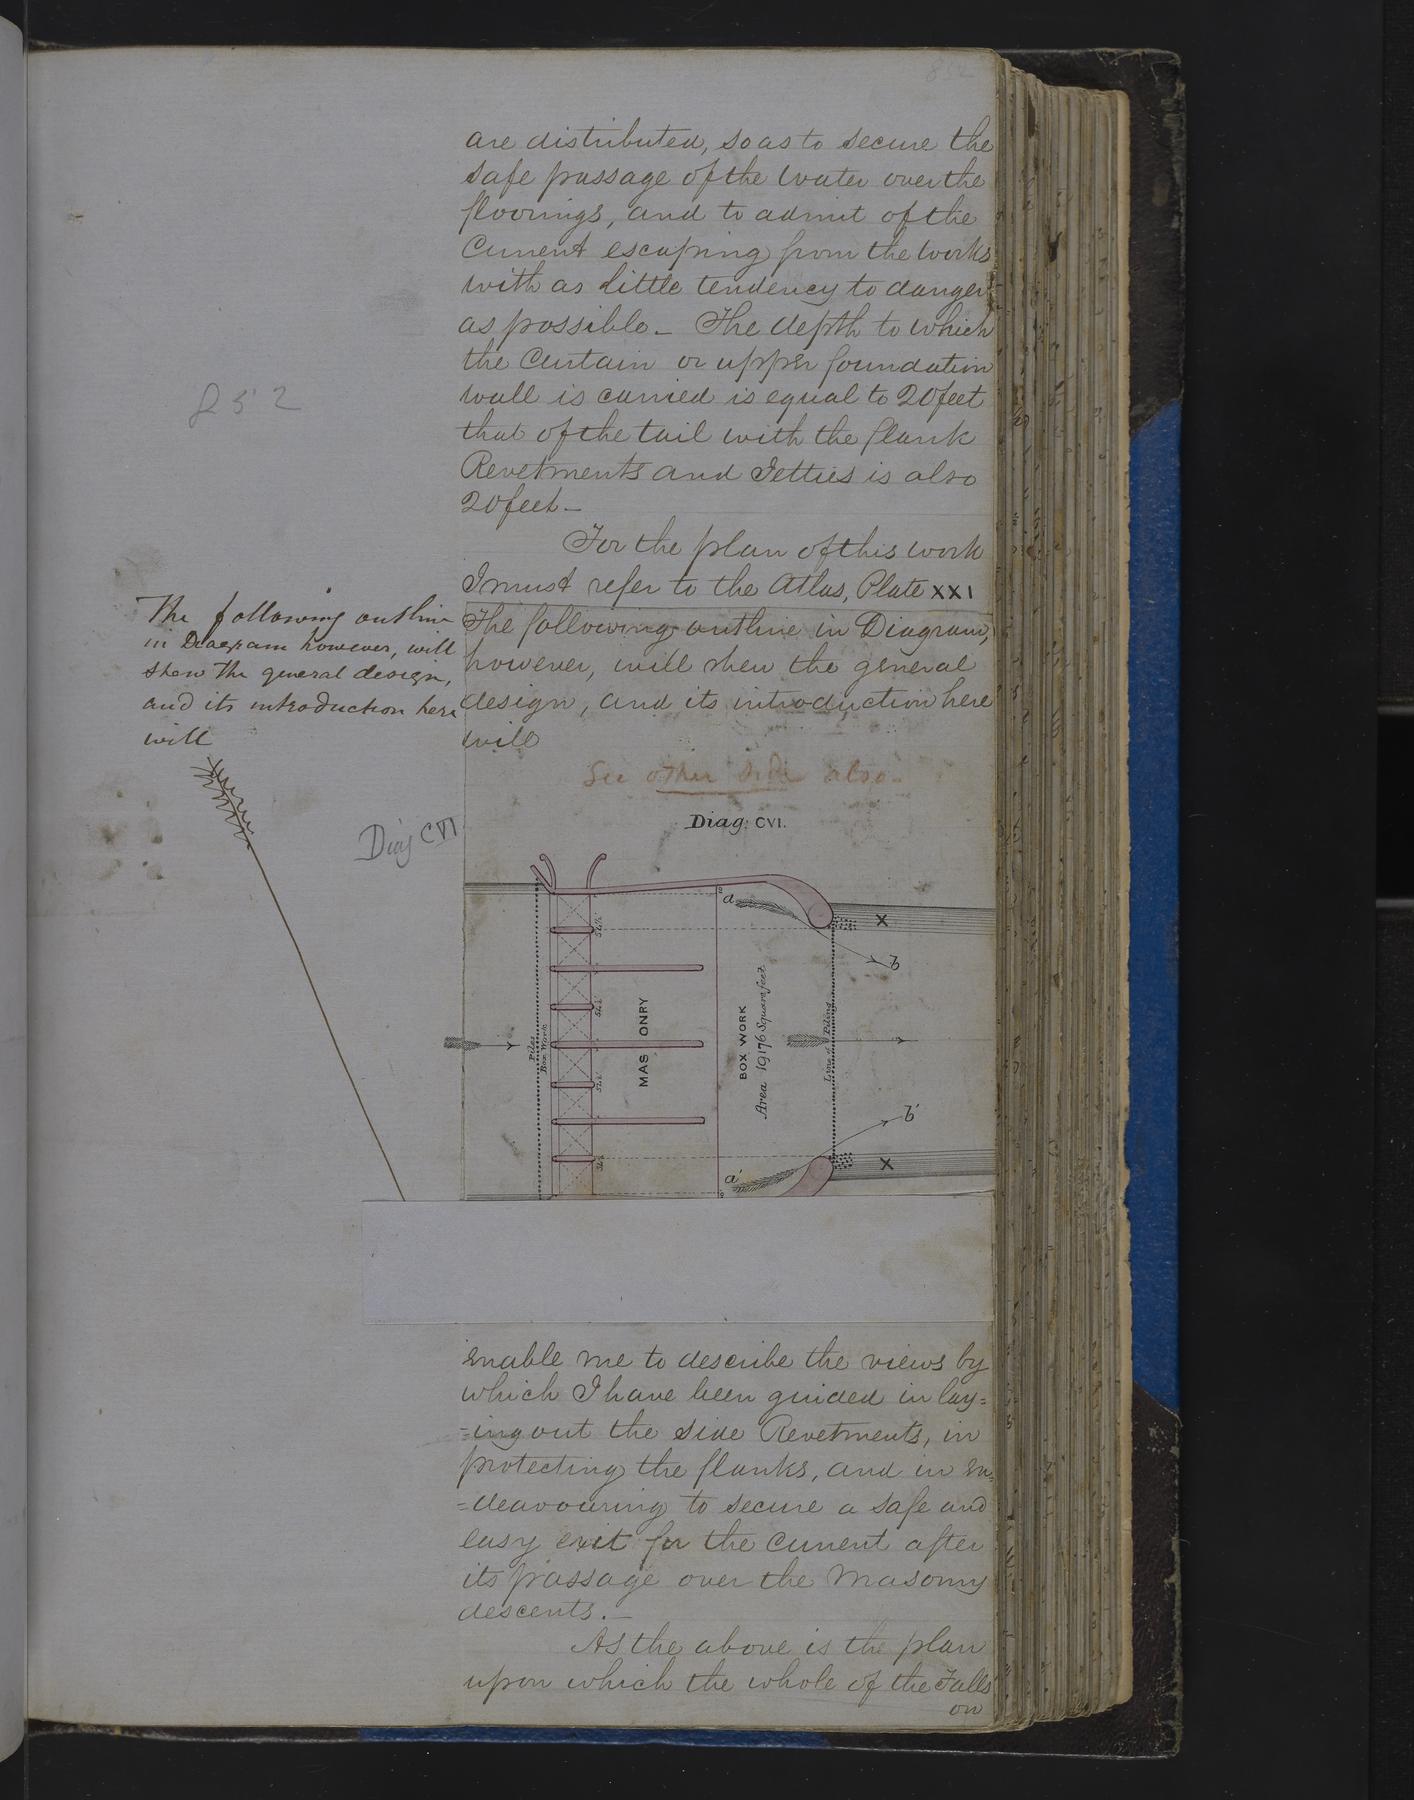 852
are distributed, so as to secure the
safe passage of the water over the
floorings, and to admit of the
Current escaping from the works
with as little tendency to danger
as possible_ The depth to which
the Curtain or upper foundation
wall is carried is equal to 20 feet
that of the tail with the flank
Revetments and Jetties is also
20 feet_
852
For the plan of this work
I must refer to the Atlas, Plate XXI
The following outline in Diagram,
however, will shew the general
design, and its introduction here
will
The following outline
in Diagram however, will
shew the general design,
and its introduction here
will
See other side also_
Diag: CVI.
Diag CVI
a
X
b
Piles
Box Work
MASONRY
BOX WORK
Area 19176 Square feet
Line of Piling
b'
a'
X
enable me to describe the views by
which I have been guided in lay=
=ing out the side Revetments, in
protecting the flanks, and in en=
=deavouring to secure a safe and
easy exit for the current after
its passage over the Masonry
descents._
As the above is the plan
upon which the whole of the Falls
on